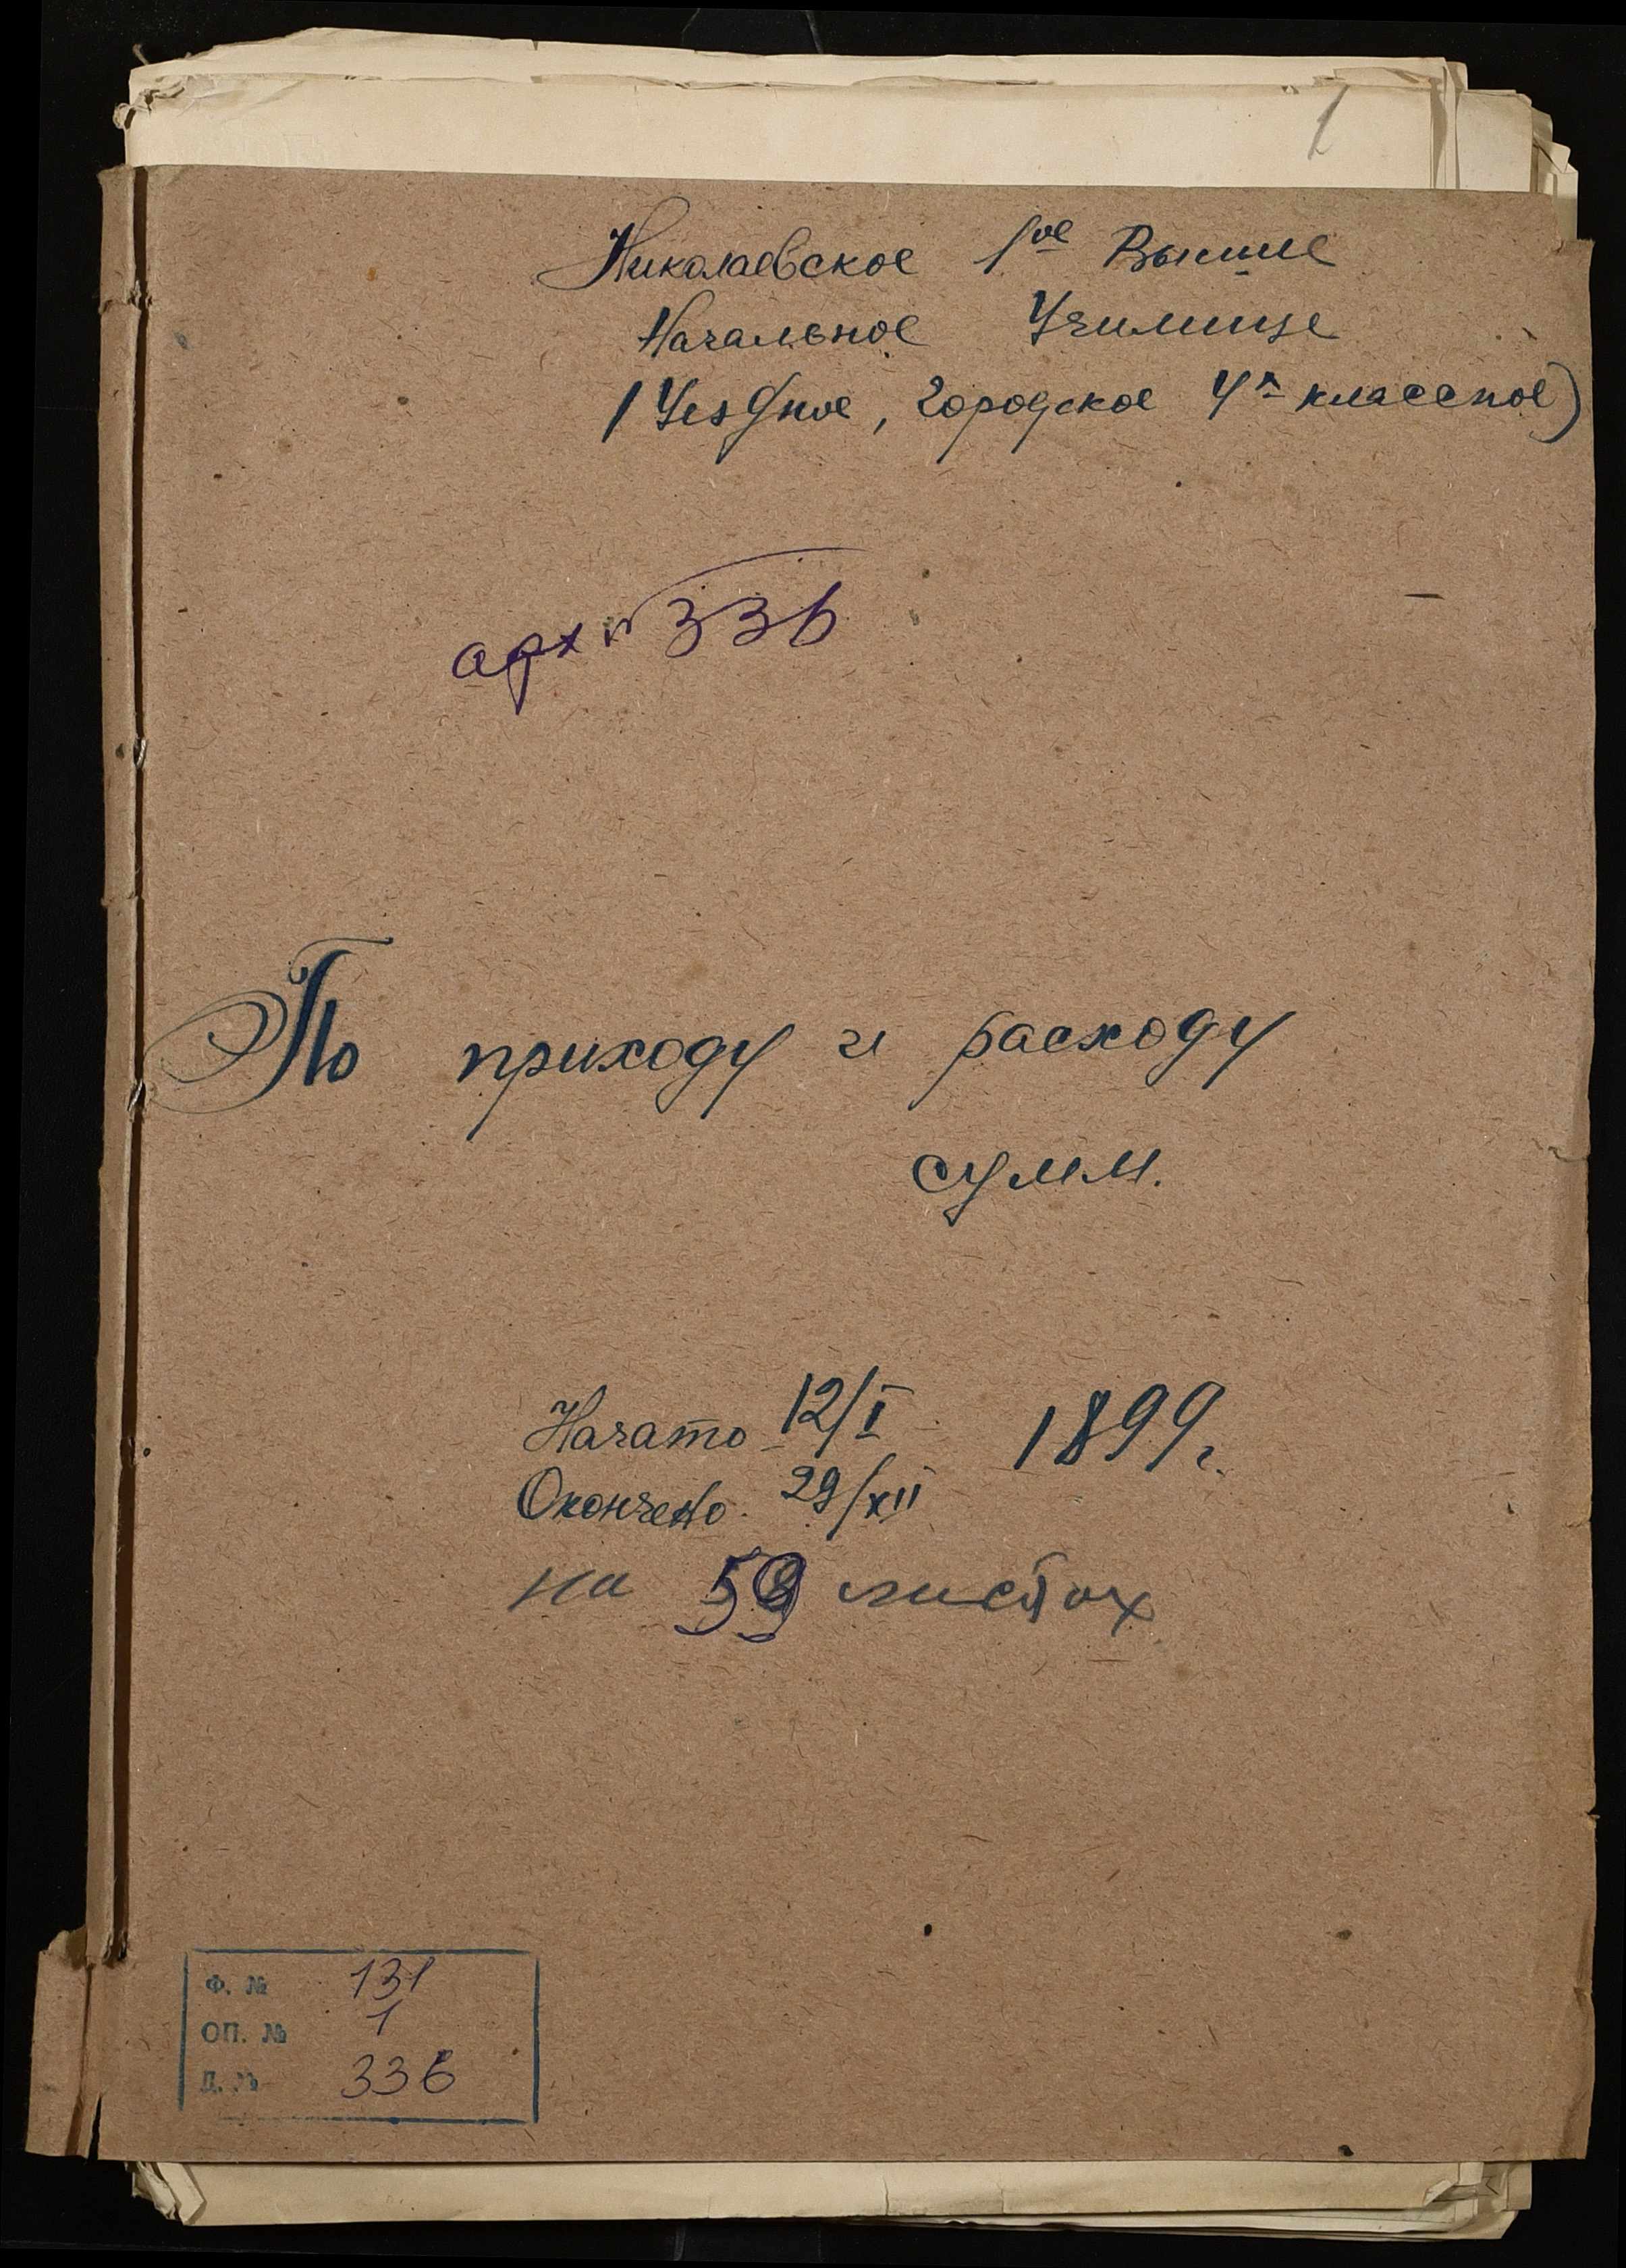 1
Николаевское 1ое Высше
Начальное Училище
(Уездное, городское 4х классное)
арх № 336
По приходу и расходу
сумм.
Начато 12/I 1899 г.
Окончено 29/XII
на 59 листах
Ф. № 131
ОП. № 1
Д. № 336